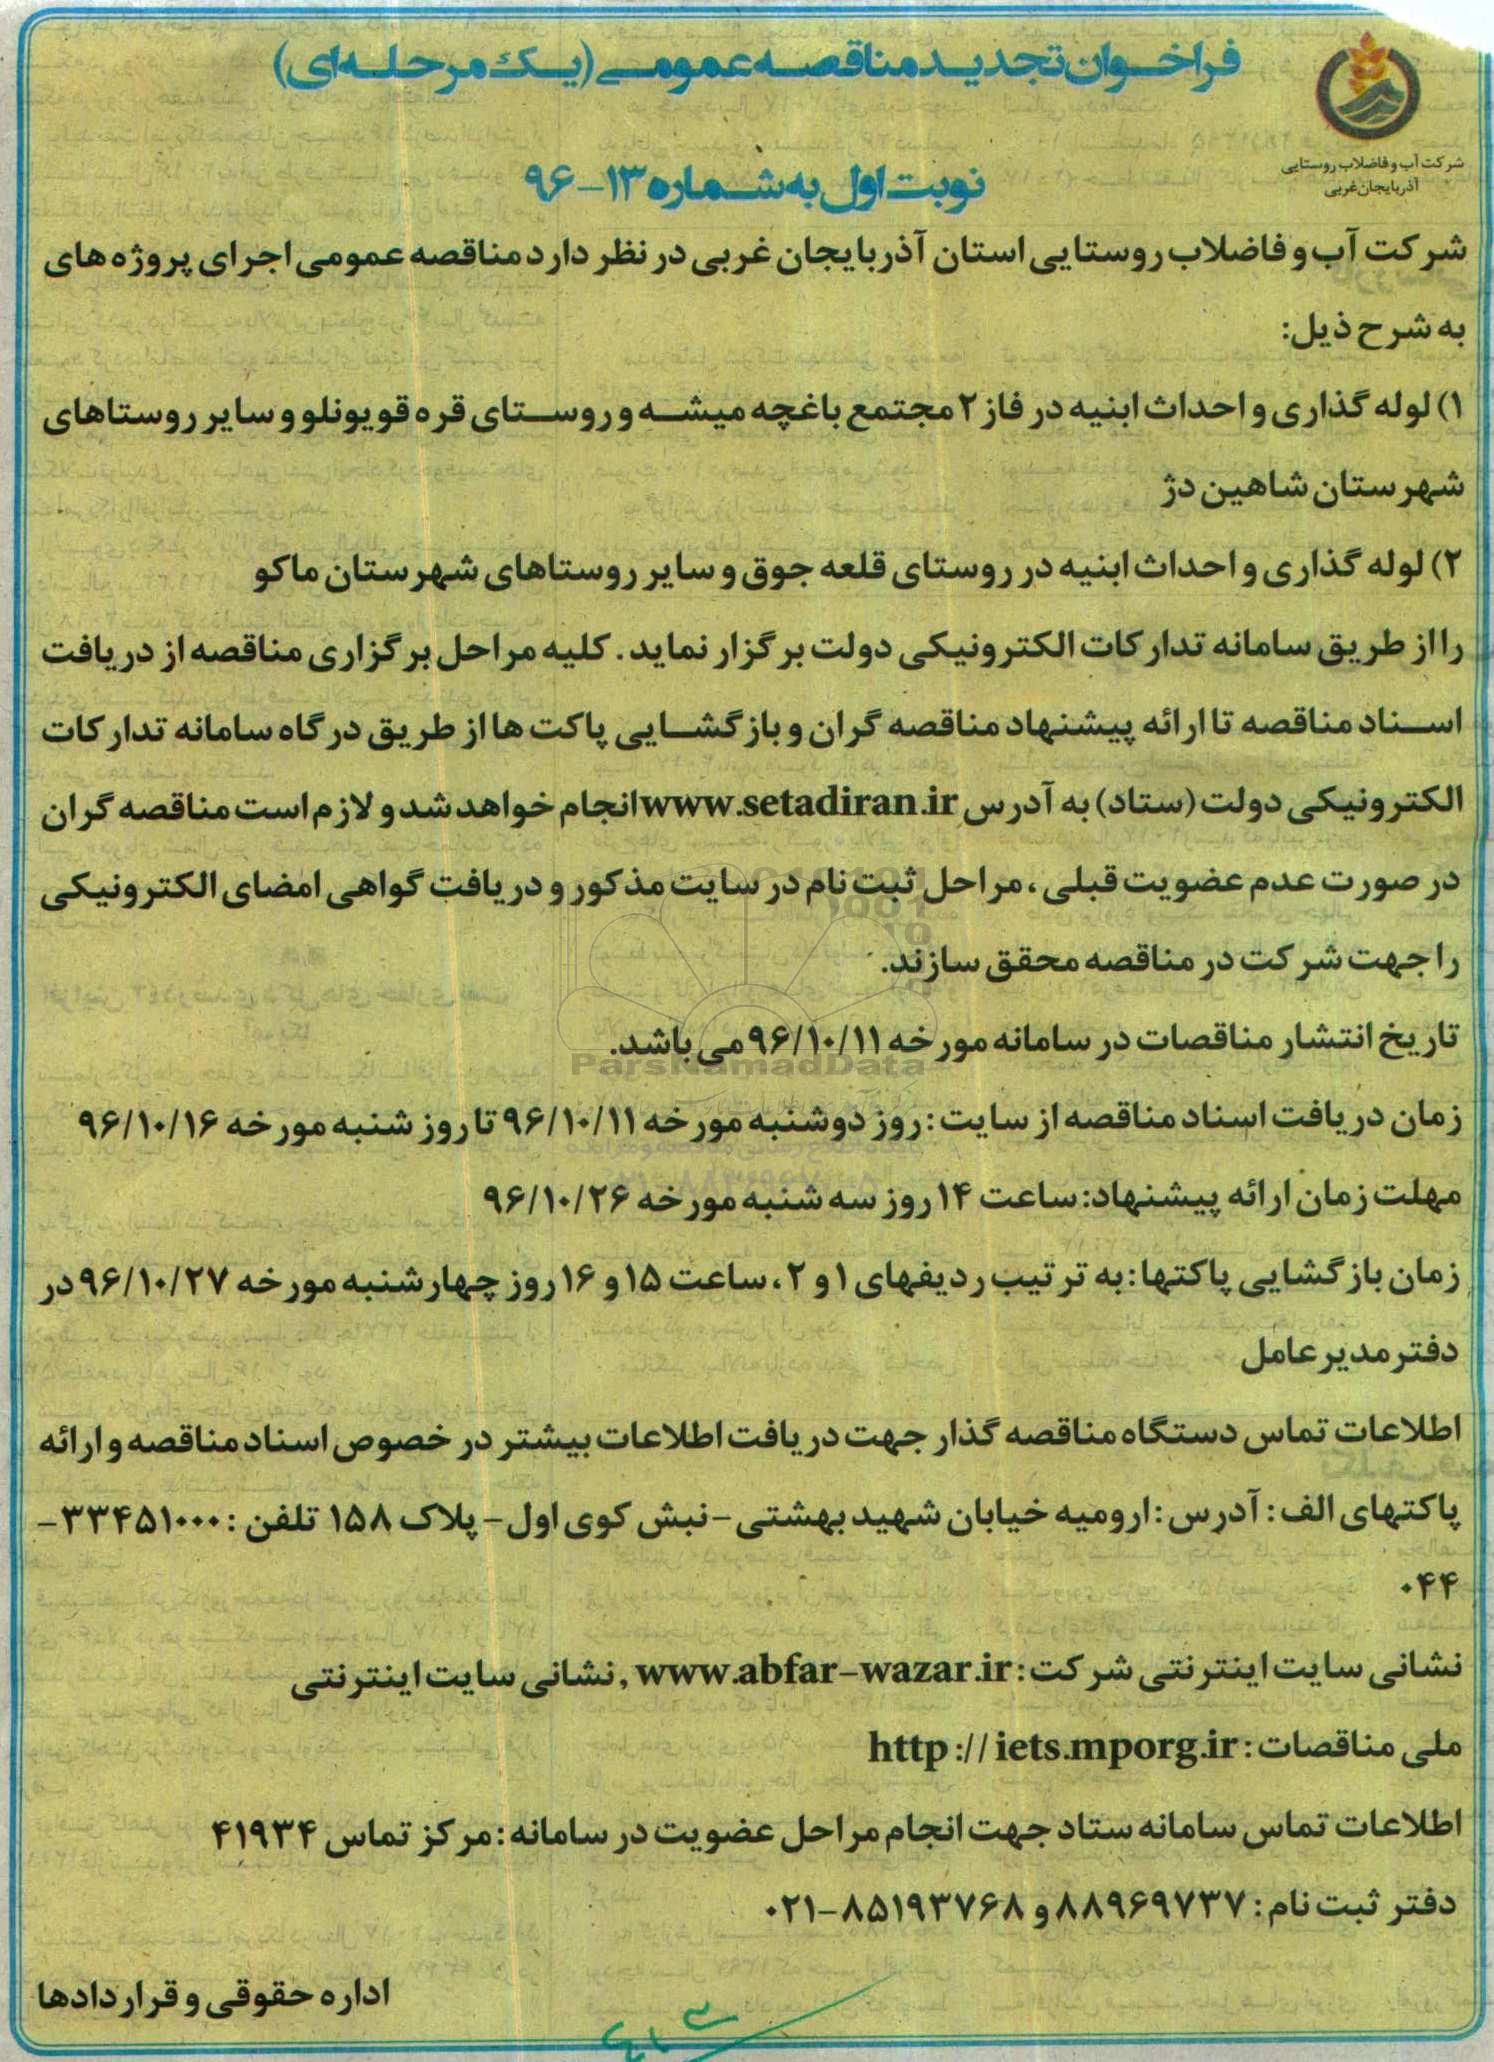 فراخوان تجدید مناقصه عمومی (یک مرحله‌ای)
شرکت آب و فاضلاب روستایی
آذربایجان غربی
نوبت اول به شماره ۱۳-۹۶
شرکت آب و فاضلاب روستایی استان آذربایجان غربی در نظر دارد مناقصه عمومی اجرای پروژه های
به شرح ذیل:
۱) لوله گذاری و احداث ابنیه در فاز ۲ مجتمع باغچه میشه و روستای قره قویونلو و سایر روستاهای
شهرستان شاهین دژ
۲) لوله گذاری و احداث ابنیه در روستای قلعه جوق و سایر روستاهای شهرستان ماکو
را از طریق سامانه تدارکات الکترونیکی دولت برگزار نماید. کلیه مراحل برگزاری مناقصه از دریافت
اسناد مناقصه تا ارائه پیشنهاد مناقصه گران و بازگشایی پاکت ها از طریق درگاه سامانه تدارکات
الکترونیکی دولت (ستاد) به آدرس www.setadiran.ir انجام خواهد شد و لازم است مناقصه گران
در صورت عدم عضویت قبلی، مراحل ثبت نام در سایت مذکور و دریافت گواهی امضای الکترونیکی
را جهت شرکت در مناقصه محقق سازند.
تاریخ انتشار مناقصات در سامانه مورخه ۹۶/۱۰/۱۱ می باشد.
ParsNamadData
زمان دریافت اسناد مناقصه از سایت: روز دوشنبه مورخه ۹۶/۱۰/۱۱ تا روز شنبه مورخه ۹۶/۱۰/۱۶
مهلت زمان ارائه پیشنهاد: ساعت ۱۴ روز سه شنبه مورخه ۹۶/۱۰/۲۶
زمان بازگشایی پاکتها: به ترتیب ردیفهای ۱ و ۲، ساعت ۱۵ و ۱۶ روز چهارشنبه مورخه ۹۶/۱۰/۲۷ در
دفتر مدیرعامل
اطلاعات تماس دستگاه مناقصه گذار جهت دریافت اطلاعات بیشتر در خصوص اسناد مناقصه و ارائه
پاکتهای الف: آدرس: ارومیه خیابان شهید بهشتی - نبش کوی اول - پلاک ۱۵۸ تلفن: ۳۳۴۵۱۰۰۰-
۰۴۴
نشانی سایت اینترنتی شرکت: www.abfar-wazar.ir , نشانی سایت اینترنتی
ملی مناقصات: http://iets.mporg.ir
اطلاعات تماس سامانه ستاد جهت انجام مراحل عضویت در سامانه: مرکز تماس ۴۱۹۳۴
دفتر ثبت نام: ۸۸۹۶۹۷۳۷ و ۸۵۱۹۳۷۶۸-۰۲۱
اداره حقوقی و قراردادها